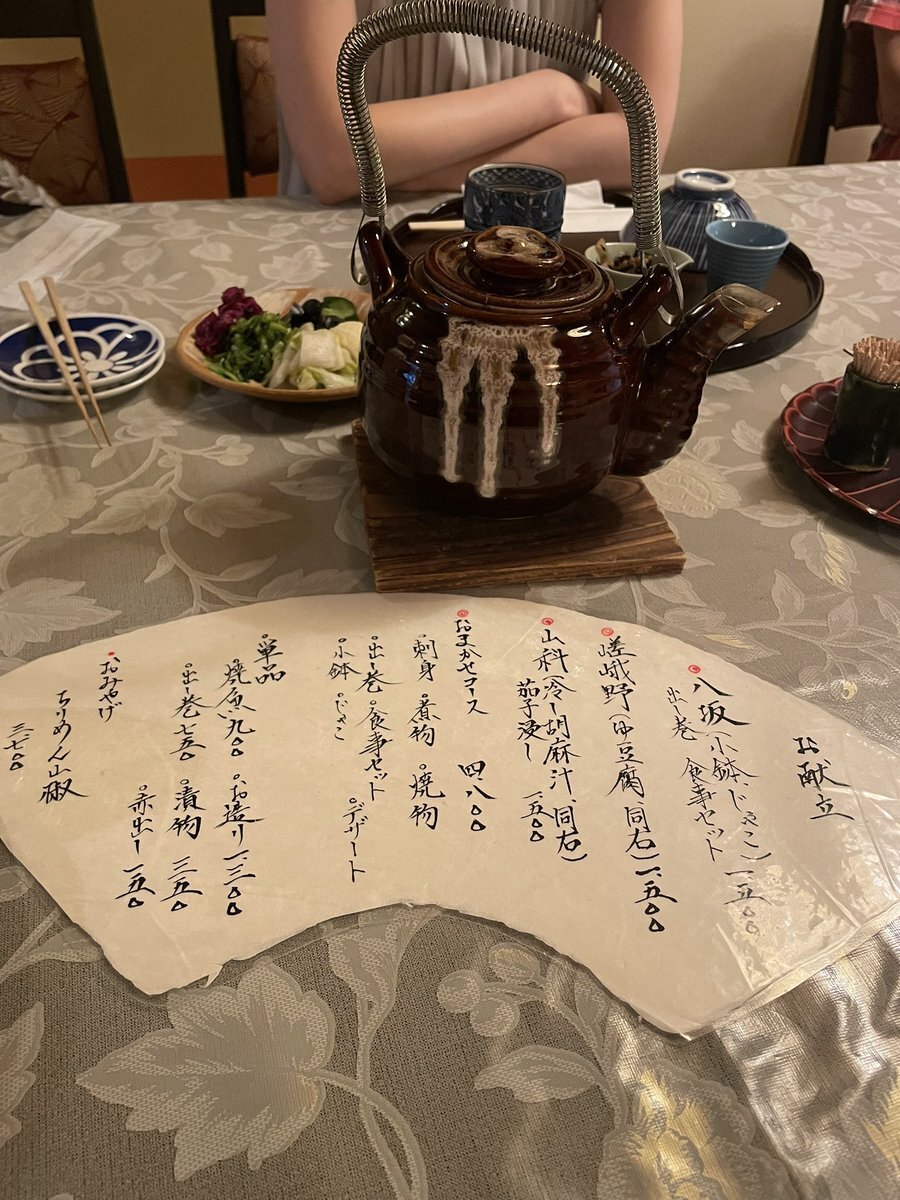 お献立
八坂(小鉢・じゃこ)一、五〇〇
出し巻 食事セット
嵯峨野(ゆ豆腐、同右)一、五〇〇
山科(冷し胡麻汁、同右)
茄子浸し 一、五〇〇
おまかせコース 四、八〇〇
刺身 煮物 焼物
出し巻 食事セット
小鉢 じゃこ デザート
単品
焼魚 九〇〇 お造り 一、三〇〇
出し巻 七五〇 漬物 三五〇
赤出し 一五〇
おみやげ
ちりめん山椒
三、七〇〇